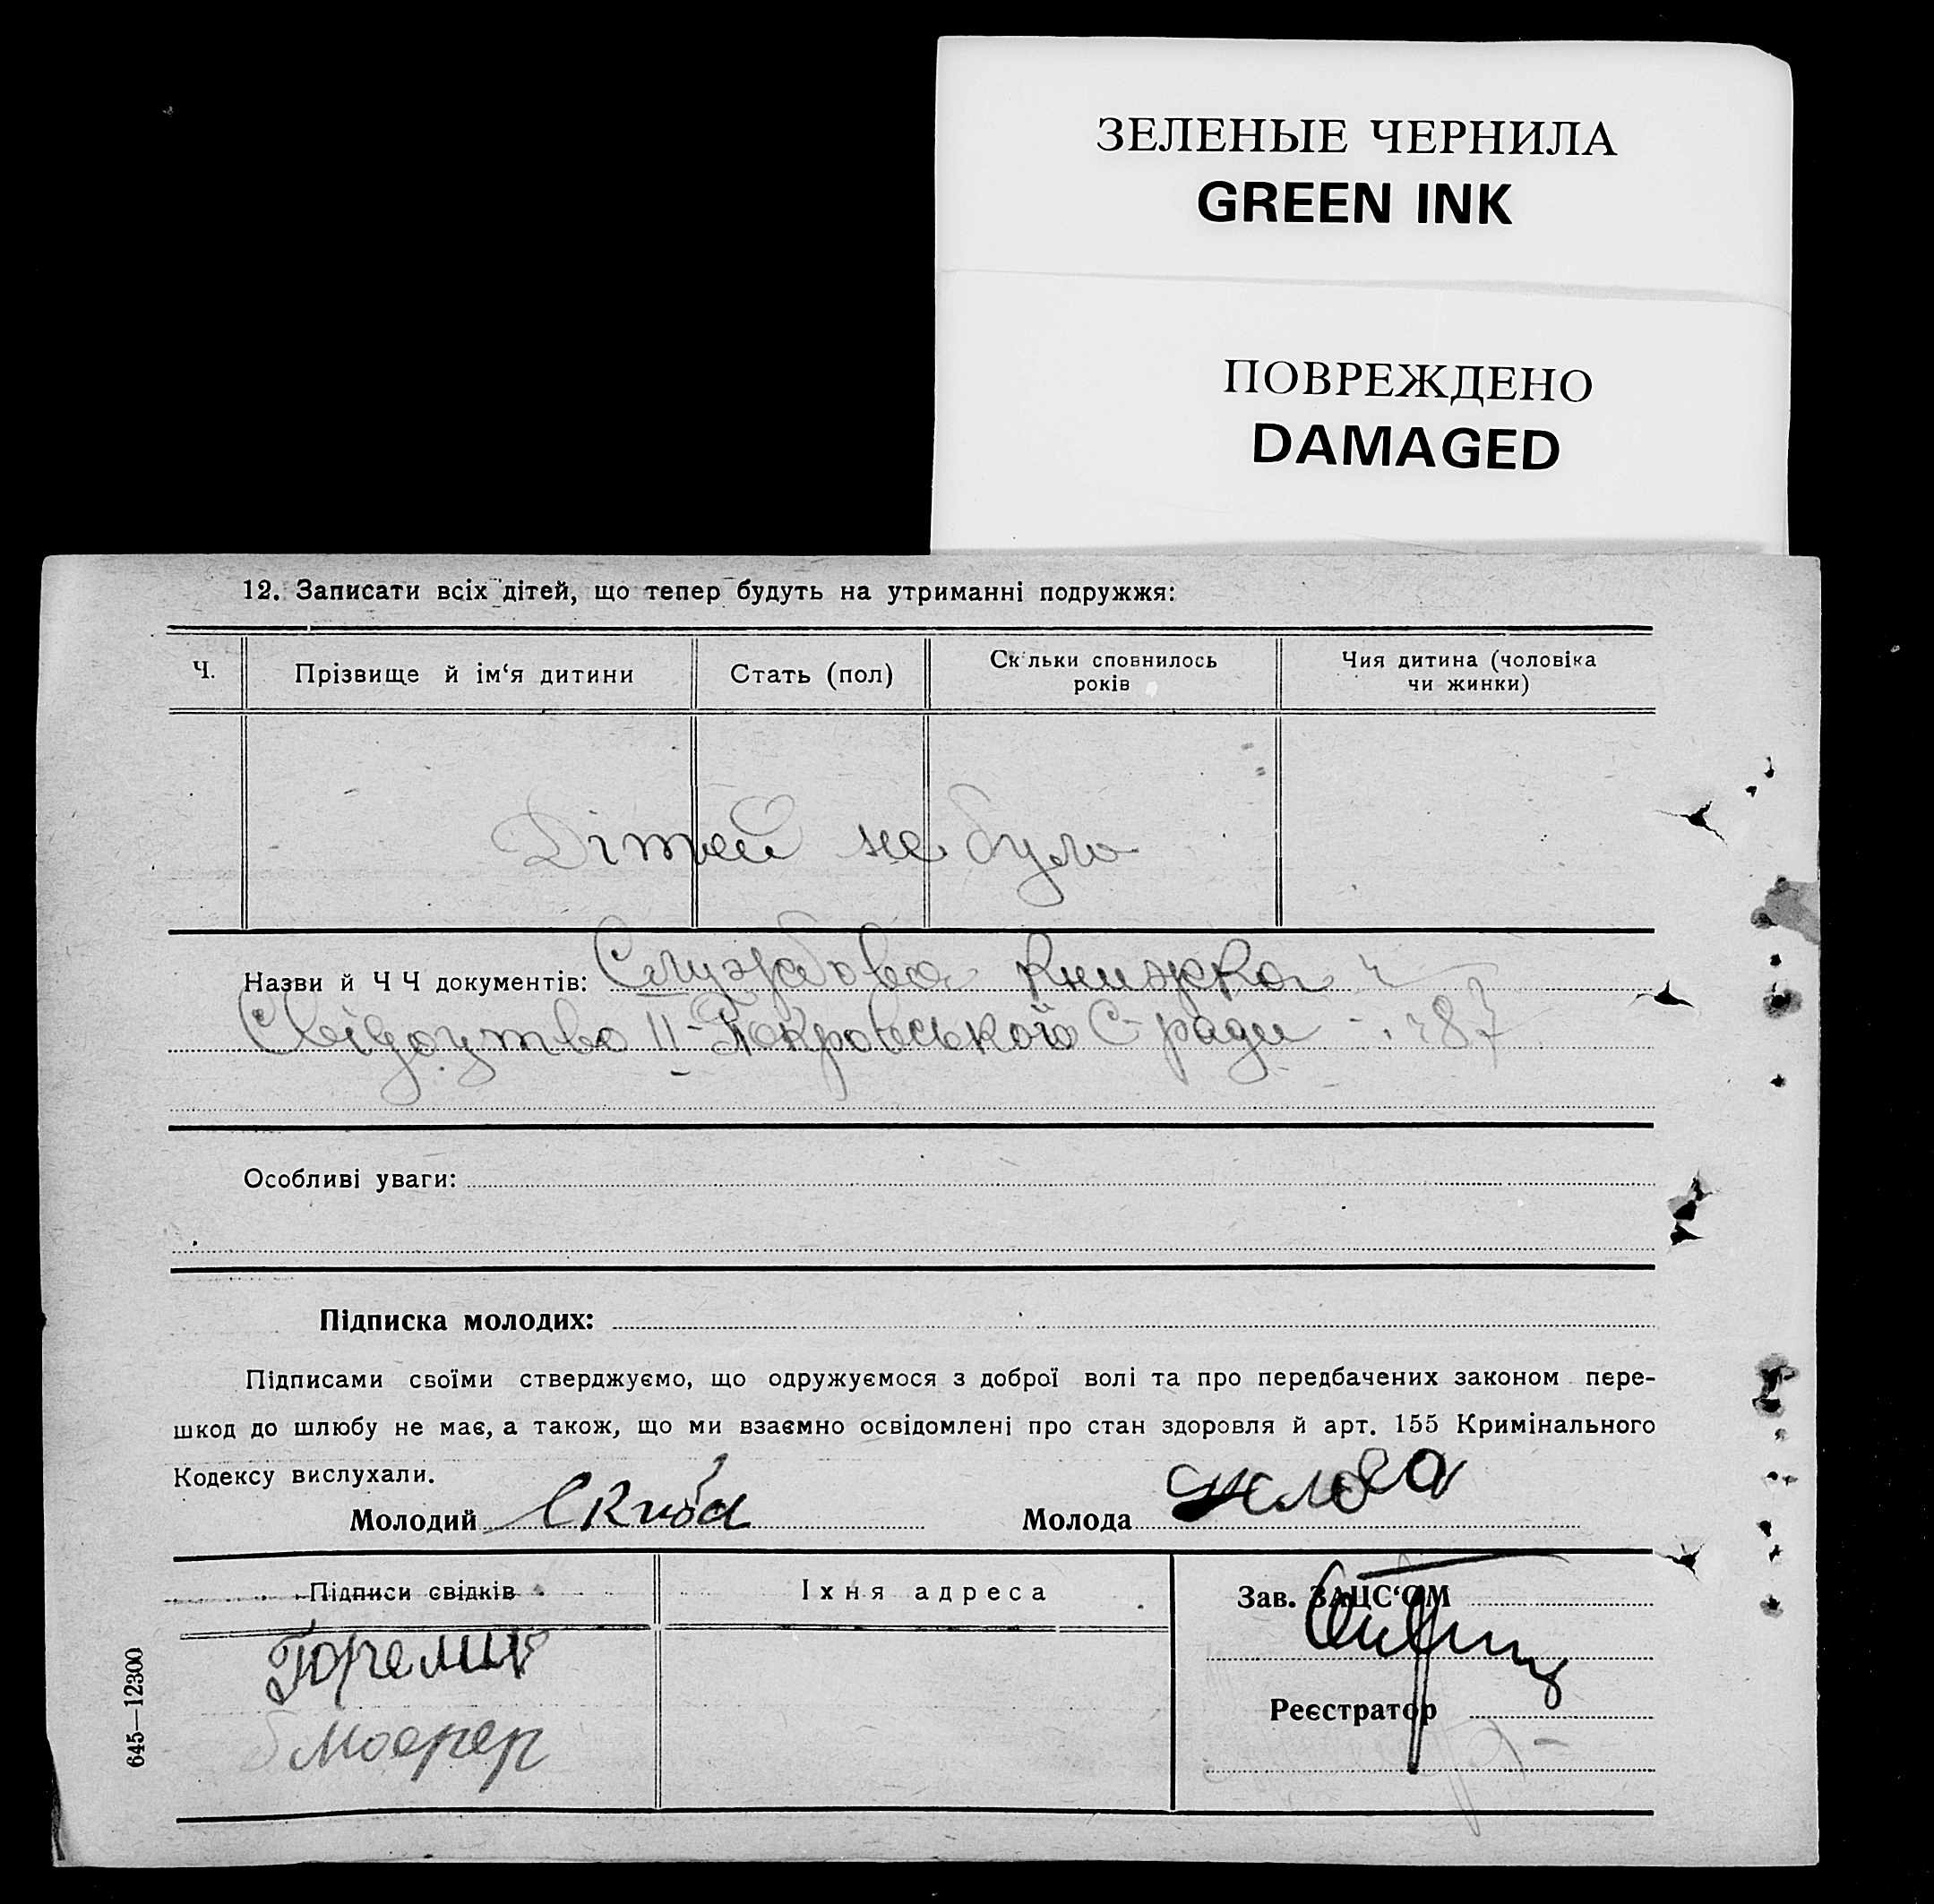 ЗЕЛЕНЫЕ ЧЕРНИЛА
GREEN INK
ПОВРЕЖДЕНО
DAMAGED
12. Записати всіх дітей, що тепер будуть на утриманні подружжя:
Ч. Прізвище й ім‘я дитини Стать (пол) Скільки сповнилось років Чия дитина (чоловіка чи жинки)
Дітей не було
Назви й Ч Ч документів: Службова книжка ч
Свідоцтво ІІ-Покровського С-ради 287
Особливі уваги:
Підписка молодих:
Підписами своїми стверджуємо, що одружуємося з доброї волі та про передбачених законом пере-
шкод до шлюбу не має, а також, що ми взаємно освідомлені про стан здоровля й арт. 155 Кримінального
Кодексу вислухали.
Молодий Скиба Молода
Підписи свідків Їхня адреса Зав. ЗАЦС‘ОМ
Реєстратор
645—12300